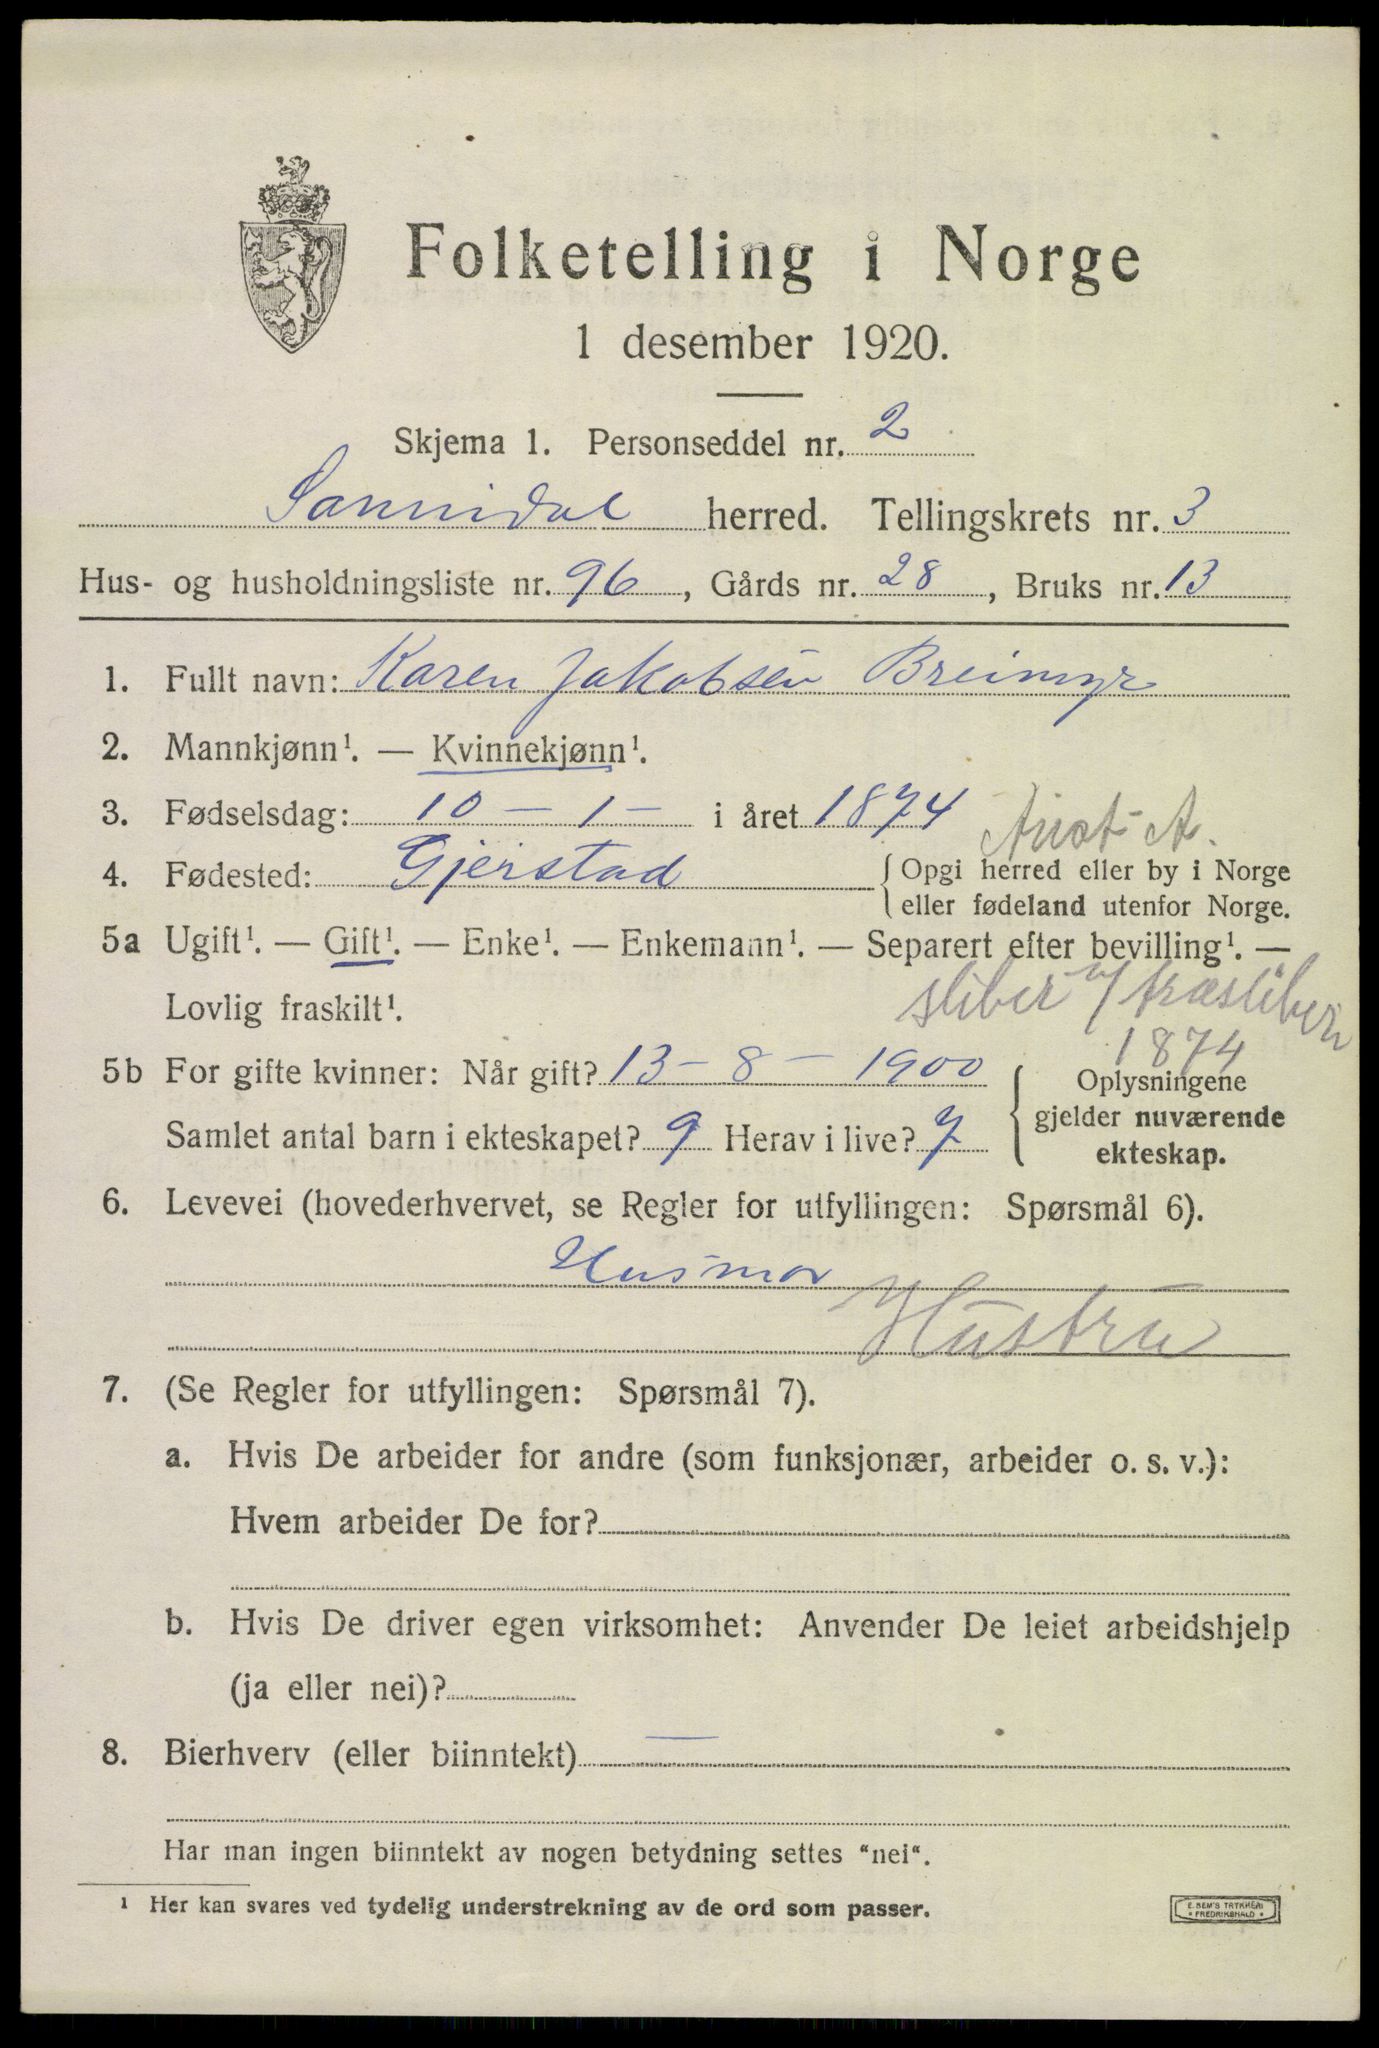 Folketelling i Norge
1 desember 1920.
Skjema 1. Personseddel nr. 2
Sannidal herred. Tellingskrets nr. 3
Hus- og husholdningsliste nr. 96, Gårds nr. 28, Bruks nr. 13
1. Fullt navn: Karen Jakobsen Breimyr
2. Mannkjønn¹. — Kvinnekjønn¹.
3. Fødselsdag: 10 – 1 – i året 1874
Aust-A.
4. Fødested: Gjerstad
Opgi herred eller by i Norge
eller fødeland utenfor Norge.
5a Ugift¹. — Gift¹. — Enke¹. — Enkemann¹. — Separert efter bevilling¹. —
Lovlig fraskilt¹.
sliber v/ træsliberi
1874
5b For gifte kvinner: Når gift? 13 – 8 – 1900
Samlet antal barn i ekteskapet? 9 Herav i live? 7
Oplysningene
gjelder nuværende
ekteskap.
6. Levevei (hovederhvervet, se Regler for utfyllingen: Spørsmål 6).
Husmor
Hustru
7. (Se Regler for utfyllingen: Spørsmål 7).
a. Hvis De arbeider for andre (som funksjonær, arbeider o. s. v.):
Hvem arbeider De for?
b. Hvis De driver egen virksomhet: Anvender De leiet arbeidshjelp
(ja eller nei)?
8. Bierhverv (eller biinntekt) —
Har man ingen biinntekt av nogen betydning settes "nei".
¹ Her kan svares ved tydelig understrekning av de ord som passer.
E. SEM'S TRYKKERI
* FREDRIKSHALD *